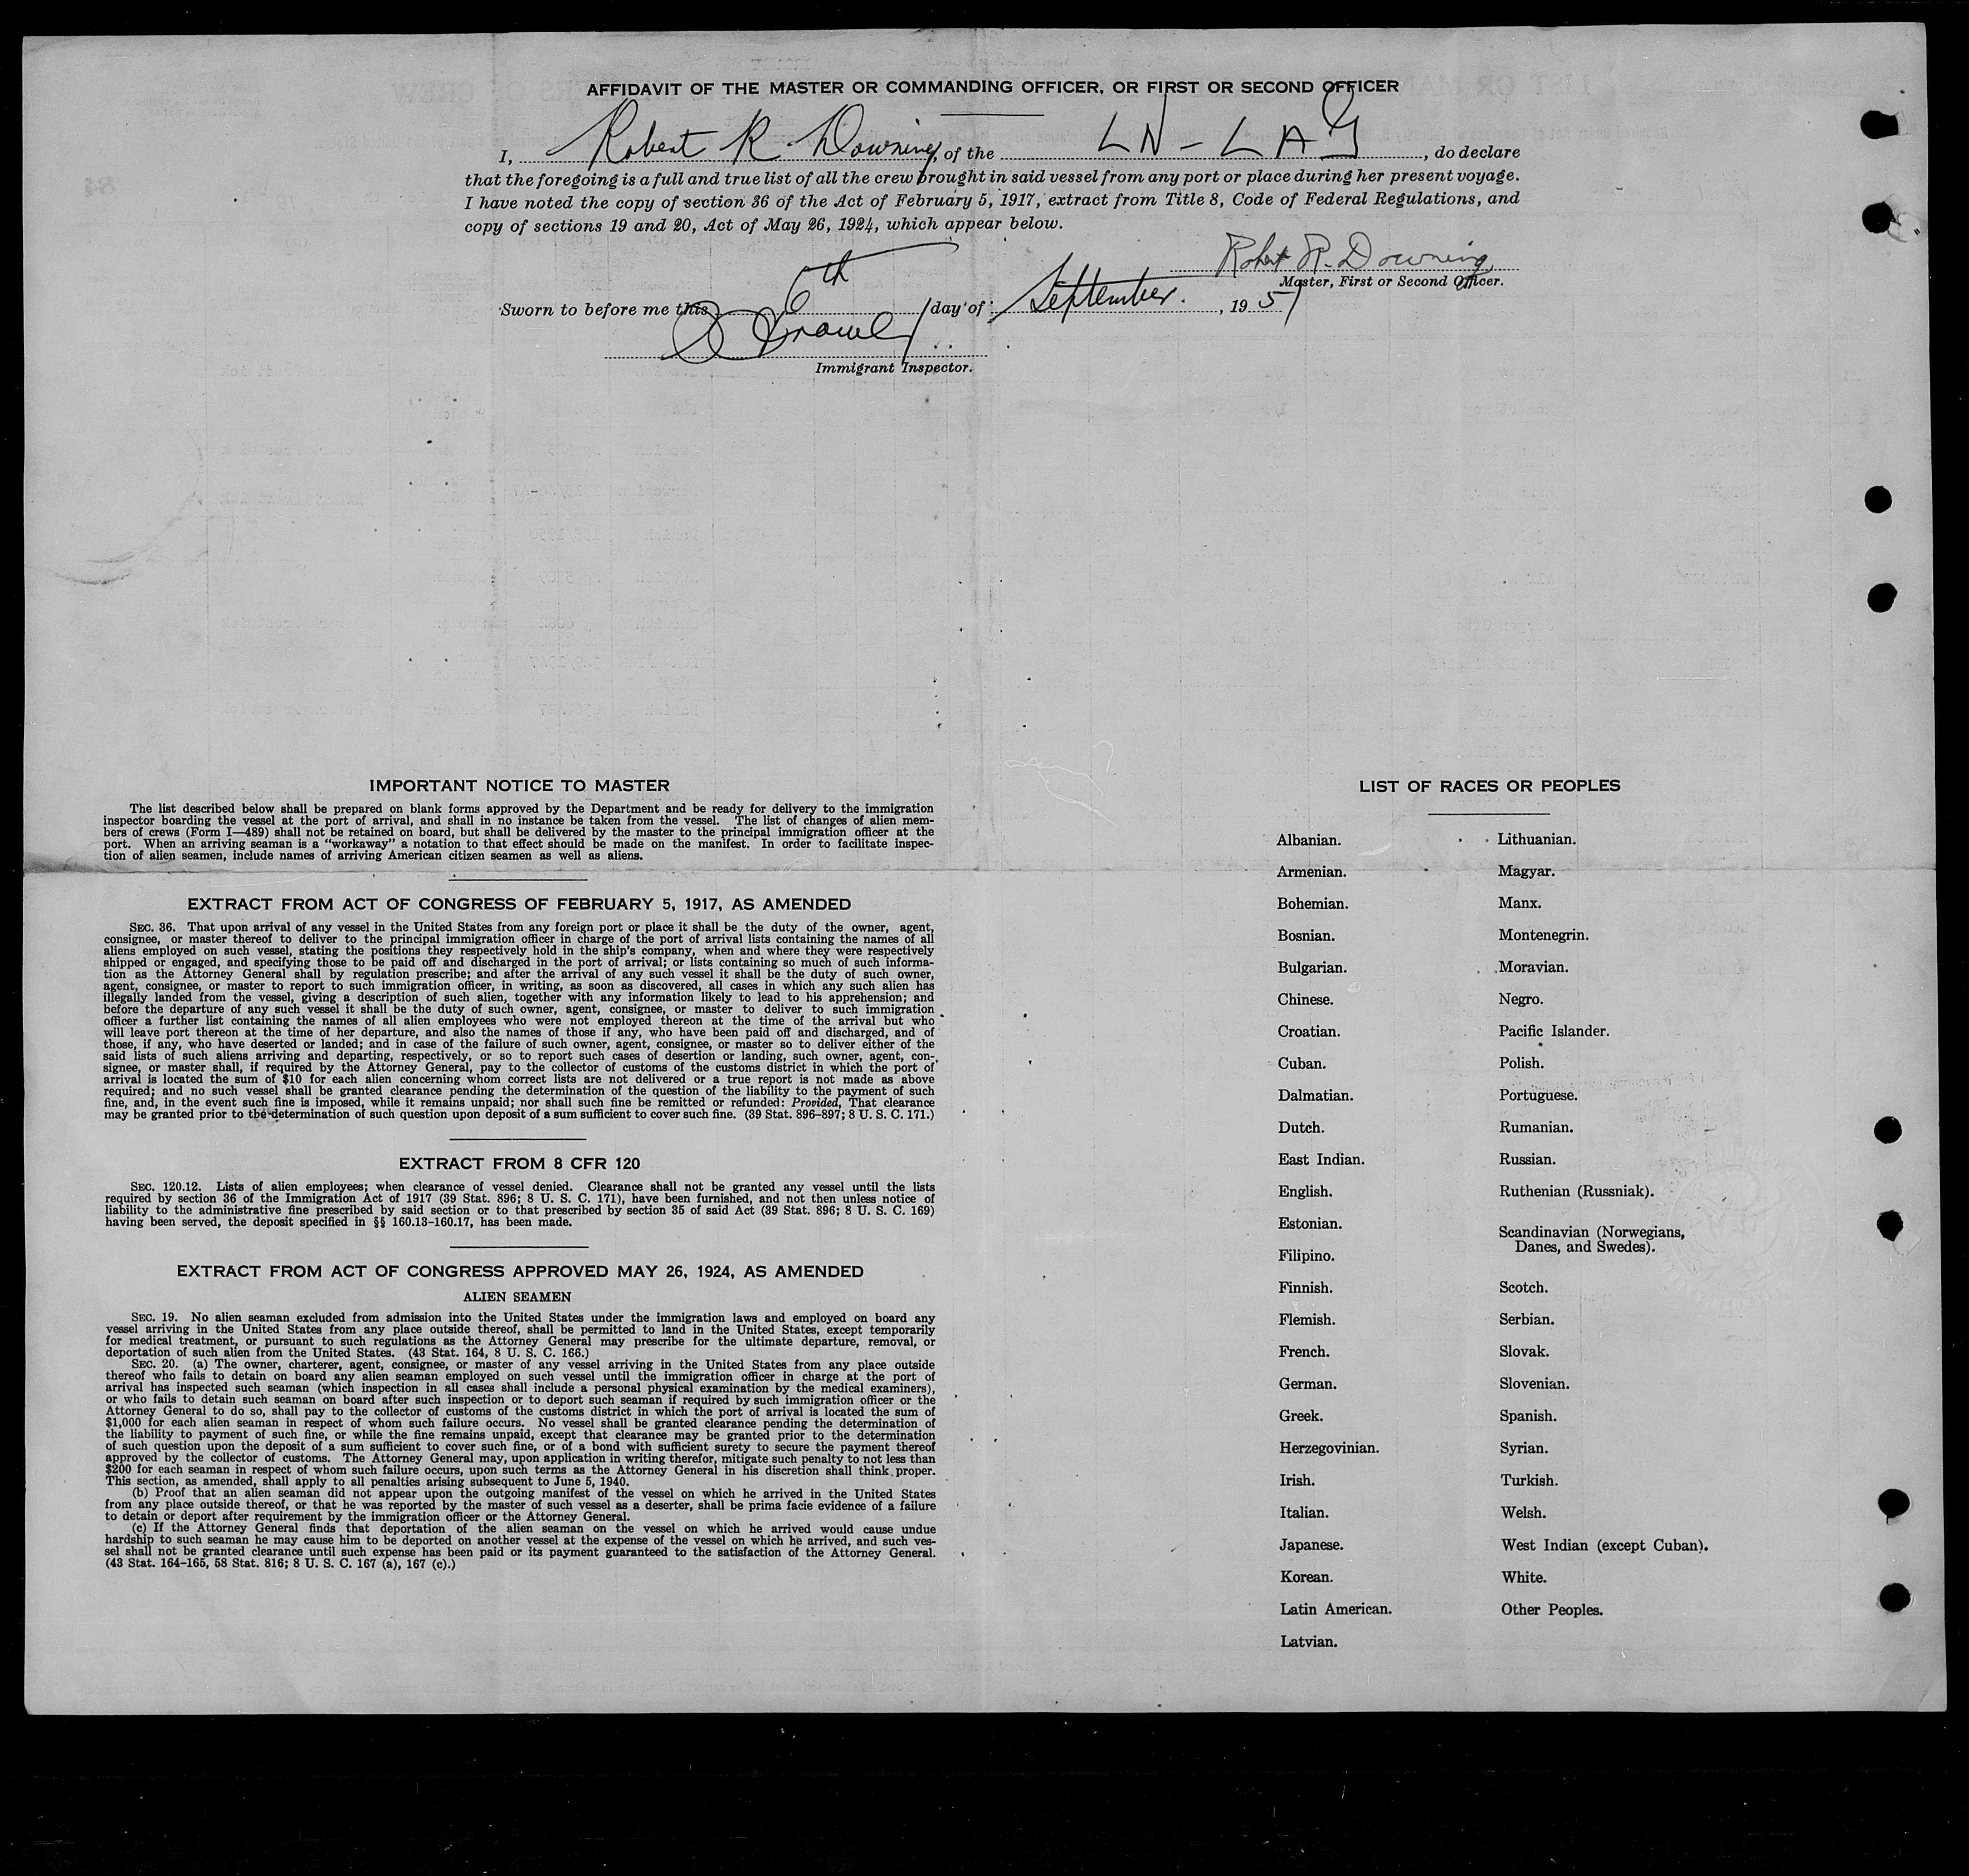 AFFIDAVIT OF THE MASTER OR COMMANDING OFFICER, OR FIRST OR SECOND OFFICER
I, Robert R. Downing, of the LN-LAG, do declare
that the foregoing is a full and true list of all the crew brought in said vessel from any port or place during her present voyage.
I have noted the copy of section 36 of the Act of February 5, 1917, extract from Title 8, Code of Federal Regulations, and
copy of sections 19 and 20, Act of May 26, 1924, which appear below.
Robert R. Downing
Master, First or Second Officer.
Sworn to before me this 6th day of September, 1951
Immigrant Inspector.
IMPORTANT NOTICE TO MASTER
The list described below shall be prepared on blank forms approved by the Department and be ready for delivery to the immigration
inspector boarding the vessel at the port of arrival, and shall in no instance be taken from the vessel. The list of changes of alien mem-
bers of crews (Form I—489) shall not be retained on board, but shall be delivered by the master to the principal immigration officer at the
port. When an arriving seaman is a "workaway" a notation to that effect should be made on the manifest. In order to facilitate inspec-
tion of alien seamen, include names of arriving American citizen seamen as well as aliens.
EXTRACT FROM ACT OF CONGRESS OF FEBRUARY 5, 1917, AS AMENDED
SEC. 36. That upon arrival of any vessel in the United States from any foreign port or place it shall be the duty of the owner, agent,
consignee, or master thereof to deliver to the principal immigration officer in charge of the port of arrival lists containing the names of all
aliens employed on such vessel, stating the positions they respectively hold in the ship's company, when and where they were respectively
shipped or engaged, and specifying those to be paid off and discharged in the port of arrival; or lists containing so much of such informa-
tion as the Attorney General shall by regulation prescribe; and after the arrival of any such vessel it shall be the duty of such owner,
agent, consignee, or master to report to such immigration officer, in writing, as soon as discovered, all cases in which any such alien has
illegally landed from the vessel, giving a description of such alien, together with any information likely to lead to his apprehension; and
before the departure of any such vessel it shall be the duty of such owner, agent, consignee, or master to deliver to such immigration
officer a further list containing the names of all alien employees who were not employed thereon at the time of the arrival but who
will leave port thereon at the time of her departure, and also the names of those if any, who have been paid off and discharged, and of
those, if any, who have deserted or landed; and in case of the failure of such owner, agent, consignee, or master so to deliver either of the
said lists of such aliens arriving and departing, respectively, or so to report such cases of desertion or landing, such owner, agent, con-
signee, or master shall, if required by the Attorney General, pay to the collector of customs of the customs district in which the port of
arrival is located the sum of $10 for each alien concerning whom correct lists are not delivered or a true report is not made as above
required; and no such vessel shall be granted clearance pending the determination of the question of the liability to the payment of such
fine, and, in the event such fine is imposed, while it remains unpaid; nor shall such fine be remitted or refunded: Provided, That clearance
may be granted prior to the determination of such question upon deposit of a sum sufficient to cover such fine. (39 Stat. 896–897; 8 U. S. C. 171.)
EXTRACT FROM 8 CFR 120
SEC. 120.12. Lists of alien employees; when clearance of vessel denied. Clearance shall not be granted any vessel until the lists
required by section 36 of the Immigration Act of 1917 (39 Stat. 896; 8 U. S. C. 171), have been furnished, and not then unless notice of
liability to the administrative fine prescribed by said section or to that prescribed by section 35 of said Act (39 Stat. 896; 8 U. S. C. 169)
having been served, the deposit specified in §§ 160.13–160.17, has been made.
EXTRACT FROM ACT OF CONGRESS APPROVED MAY 26, 1924, AS AMENDED
ALIEN SEAMEN
SEC. 19. No alien seaman excluded from admission into the United States under the immigration laws and employed on board any
vessel arriving in the United States from any place outside thereof, shall be permitted to land in the United States, except temporarily
for medical treatment, or pursuant to such regulations as the Attorney General may prescribe for the ultimate departure, removal, or
deportation of such alien from the United States. (43 Stat. 164, 8 U. S. C. 166.)
SEC. 20. (a) The owner, charterer, agent, consignee, or master of any vessel arriving in the United States from any place outside
thereof who fails to detain on board any alien seaman employed on such vessel until the immigration officer in charge at the port of
arrival has inspected such seaman (which inspection in all cases shall include a personal physical examination by the medical examiners),
or who fails to detain such seaman on board after such inspection or to deport such seaman if required by such immigration officer or the
Attorney General to do so, shall pay to the collector of customs of the customs district in which the port of arrival is located the sum of
$1,000 for each alien seaman in respect of whom such failure occurs. No vessel shall be granted clearance pending the determination of
the liability to payment of such fine, or while the fine remains unpaid, except that clearance may be granted prior to the determination
of such question upon the deposit of a sum sufficient to cover such fine, or of a bond with sufficient surety to secure the payment thereof
approved by the collector of customs. The Attorney General may, upon application in writing therefor, mitigate such penalty to not less than
$200 for each seaman in respect of whom such failure occurs, upon such terms as the Attorney General in his discretion shall think proper.
This section, as amended, shall apply to all penalties arising subsequent to June 5, 1940.
(b) Proof that an alien seaman did not appear upon the outgoing manifest of the vessel on which he arrived in the United States
from any place outside thereof, or that he was reported by the master of such vessel as a deserter, shall be prima facie evidence of a failure
to detain or deport after requirement by the immigration officer or the Attorney General.
(c) If the Attorney General finds that deportation of the alien seaman on the vessel on which he arrived would cause undue
hardship to such seaman he may cause him to be deported on another vessel at the expense of the vessel on which he arrived, and such ves-
sel shall not be granted clearance until such expense has been paid or its payment guaranteed to the satisfaction of the Attorney General.
(43 Stat. 164–165, 58 Stat. 816; 8 U. S. C. 167 (a), 167 (c).)
LIST OF RACES OR PEOPLES
Albanian.
Armenian.
Bohemian.
Bosnian.
Bulgarian.
Chinese.
Croatian.
Cuban.
Dalmatian.
Dutch.
East Indian.
English.
Estonian.
Filipino.
Finnish.
Flemish.
French.
German.
Greek.
Herzegovinian.
Irish.
Italian.
Japanese.
Korean.
Latin American.
Latvian.
Lithuanian.
Magyar.
Manx.
Montenegrin.
Moravian.
Negro.
Pacific Islander.
Polish.
Portuguese.
Rumanian.
Russian.
Ruthenian (Russniak).
Scandinavian (Norwegians,
Danes, and Swedes).
Scotch.
Serbian.
Slovak.
Slovenian.
Spanish.
Syrian.
Turkish.
Welsh.
West Indian (except Cuban).
White.
Other Peoples.